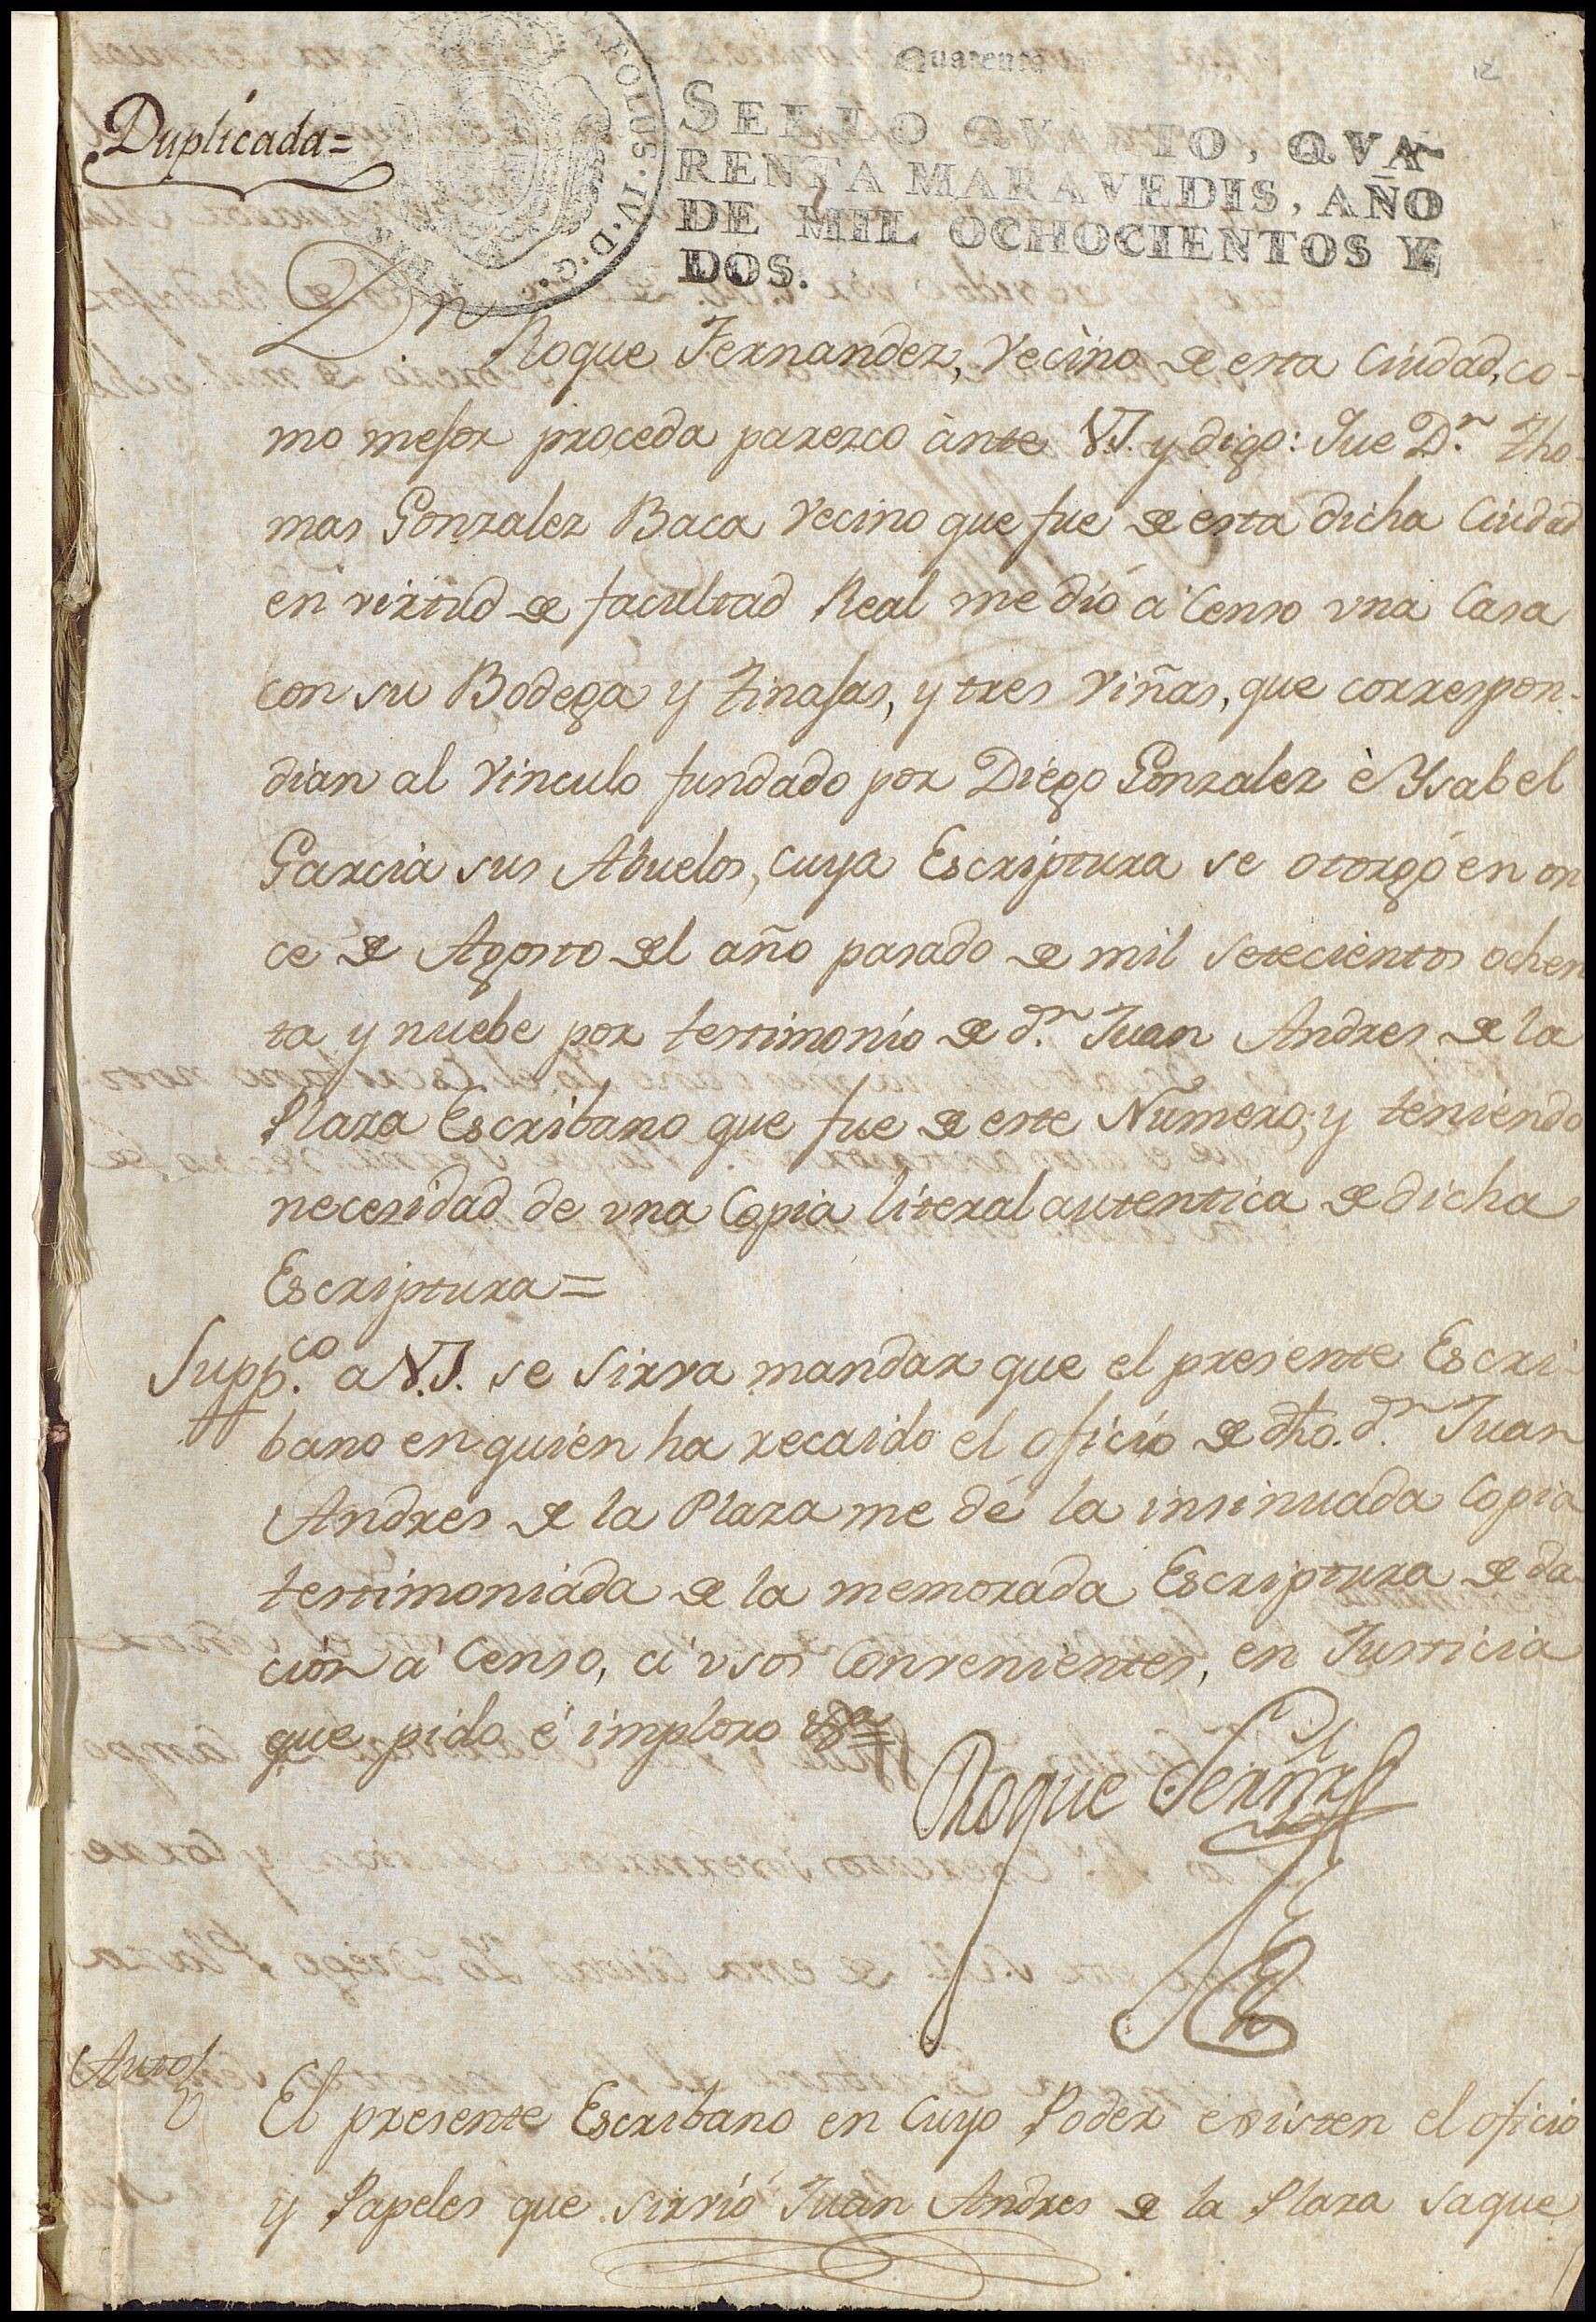 Quarenta
12
Duplicada=
CAROLUS.IV.D.G.
SELLO QVARTO, QVA-
RENTA MARAVEDIS, AÑO
DE MIL OCHOCIENTOS Y
DOS.
Dn
Roque Fernandez, Vecino de esta Ciudad, co-
mo mejor proceda parezco ànte V.S. y digo: Que D.n Tho-
mas Gonzalez Baca Vecino que fue de esta dicha Ciudad
en virtud de facultad Real me dió á Censo vna Casa
con su Bodega y Tinajas, y tres Viñas, que correspon-
dian al Vinculo fundado por Diego Gonzalez è Ysabel
Garcia sus Abuelos, cuya Escriptura se otorgó en on
ce de Agosto del año pasado de mil setecientos ochen
ta y nuebe por testimonio de d.n Juan Andres de la
Plaza Escribano que fue de este Numero; y teniendo
necesidad de vna Copia literal autentica de dicha
Escriptura=
Supp.co a V.S. se sirva mandar que el presente Escri-
bano en quien ha recaido el oficio de dho. d.n Juan
Andres de la Plaza me dé la insinuada Copia
testimoniada de la memorada Escriptura de da
ción á Censo, á vsos Convenientes, en Justicia
que pido é imploro &a=
Roque Fernrz
Auto
El presente Escribano en Cuyo Poder existen el oficio
y Papeles que sirvió Juan Andres de la Plaza saque